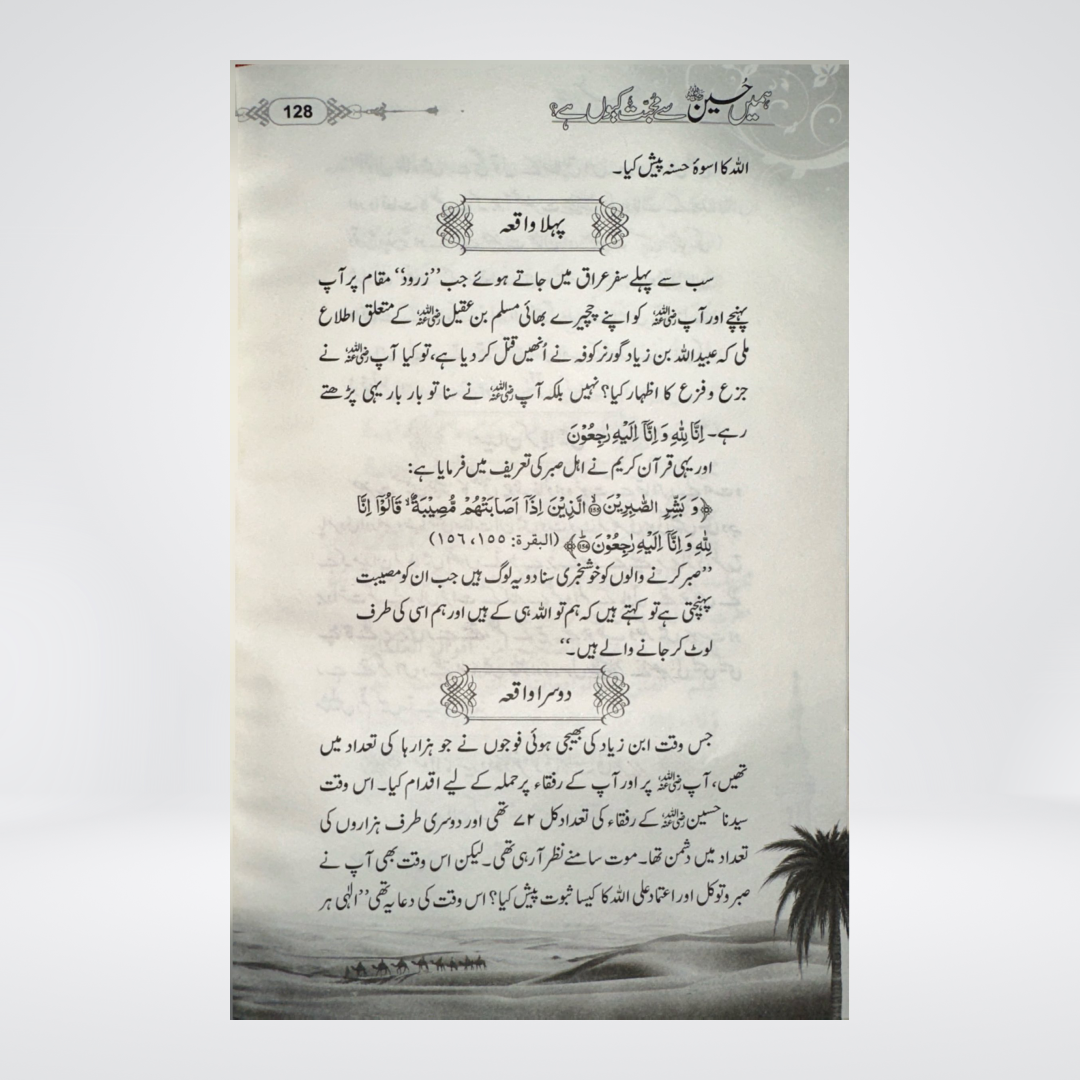 ہمیں حسینؓ سے محبت کیوں ہے؟
128
اللہ کا اسوۂ حسنہ پیش کیا۔
پہلا واقعہ
سب سے پہلے سفر عراق میں جاتے ہوئے جب ’’زرود‘‘ مقام پر آپ
پہنچے اور آپ رضی اللہ عنہ کو اپنے چچیرے بھائی مسلم بن عقیل رضی اللہ عنہ کے متعلق اطلاع
ملی کہ عبید اللہ بن زیاد گورنر کوفہ نے اُنھیں قتل کر دیا ہے، تو کیا آپ رضی اللہ عنہ نے
جزع و فزع کا اظہار کیا؟ نہیں بلکہ آپ رضی اللہ عنہ نے سنا تو بار بار یہی پڑھتے
رہے۔ اِنَّا لِلّٰهِ وَ اِنَّاۤ اِلَیْهِ رٰجِعُوْنَ
اور یہی قرآن کریم نے اہل صبر کی تعریف میں فرمایا ہے:
﴿وَ بَشِّرِ الصّٰبِرِیْنَ۝۱۵۵ الَّذِیْنَ اِذَاۤ اَصَابَتْهُمْ مُّصِیْبَةٌ ۙ قَالُوْۤا اِنَّا
لِلّٰهِ وَ اِنَّاۤ اِلَیْهِ رٰجِعُوْنَ۝۱۵۶﴾ (البقرة: ۱۵۵، ۱۵۶)
’’صبر کرنے والوں کو خوشخبری سنا دو یہ لوگ ہیں جب ان کو مصیبت
پہنچتی ہے تو کہتے ہیں کہ ہم تو اللہ ہی کے ہیں اور ہم اسی کی طرف
لوٹ کر جانے والے ہیں۔‘‘
دوسرا واقعہ
جس وقت ابن زیاد کی بھیجی ہوئی فوجوں نے جو ہزارہا کی تعداد میں
تھیں، آپ رضی اللہ عنہ پر اور آپ کے رفقاء پر حملہ کے لیے اقدام کیا۔ اس وقت
سیدنا حسین رضی اللہ عنہ کے رفقاء کی تعداد کل ۷۲ تھی اور دوسری طرف ہزاروں کی
تعداد میں دشمن تھا۔ موت سامنے نظر آ رہی تھی۔ لیکن اس وقت بھی آپ نے
صبر و توکل اور اعتماد علی اللہ کا کیسا ثبوت پیش کیا؟ اس وقت کی دعا یہ تھی ’’الٰہی ہر